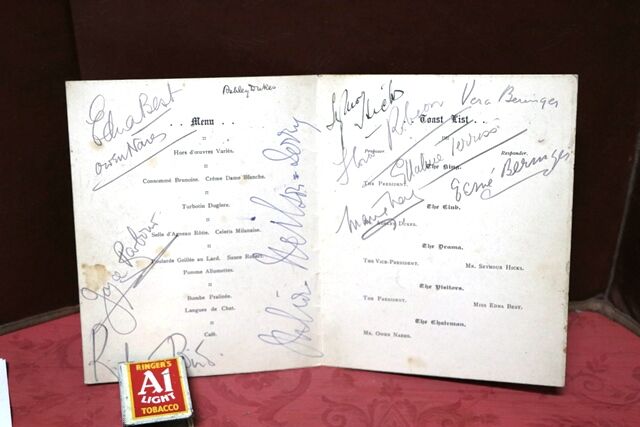 Edna Best
Ashley Dukes
Owen Nares
. . Menu . .
Hors d'œuvres Variés.
Consommé Brunoise. Crême Dame Blanche.
Turbotin Duglere.
Selle d'Agneau Rôtie. Celeris Milanaise.
Poularde Grillée au Lard. Sauce Robert.
Pomme Allumettes.
Bombe Pralinée.
Langues de Chat.
Café.
Joyce Barbour
RINGER'S
A1
LIGHT
TOBACCO
Seymour Hicks
Vera Beringer
Toast List . .
Proposer
Responder.
Ellaline Terriss
Esmé Beringer
The King.
The President.
The Club.
The Drama.
The Vice-President. Mr. Seymour Hicks.
The Visitors.
The President. Miss Edna Best.
The Chairman.
Mr. Owen Nares.